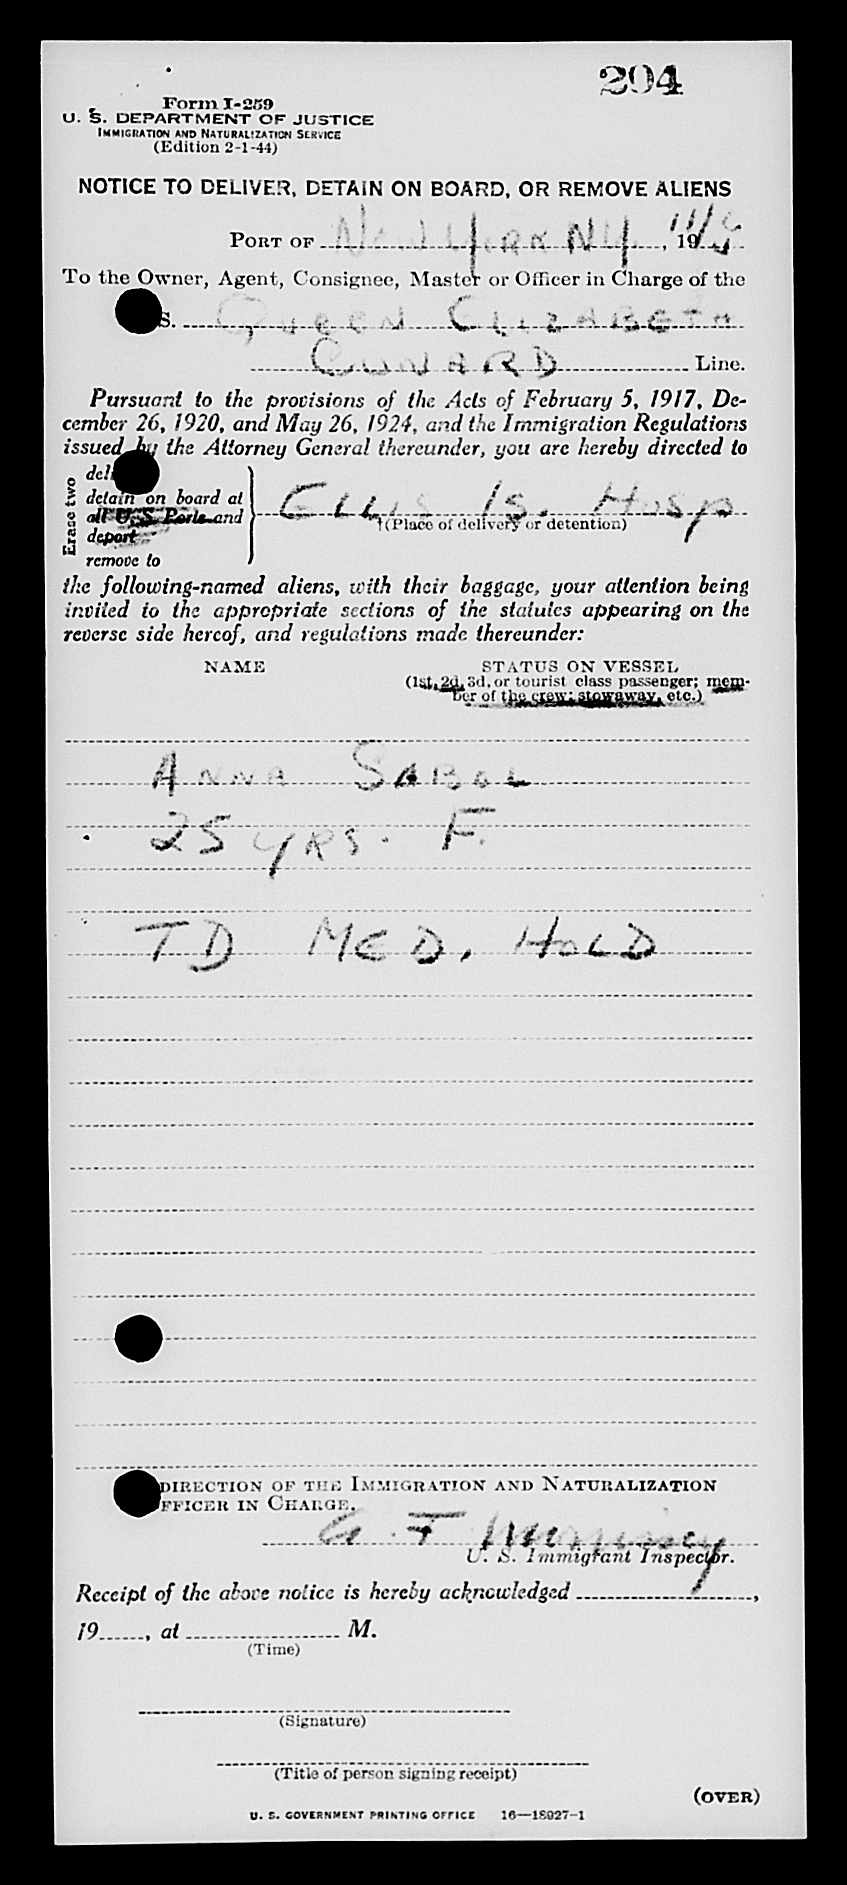 294
Form I-259
U. S. DEPARTMENT OF JUSTICE
IMMIGRATION AND NATURALIZATION SERVICE
(Edition 2-1-44)
NOTICE TO DELIVER, DETAIN ON BOARD, OR REMOVE ALIENS
PORT OF New York NY, 19
To the Owner, Agent, Consignee, Master or Officer in Charge of the
S. QUEEN ELIZABETH
CUNARD Line.
Pursuant to the provisions of the Acts of February 5, 1917, De-
cember 26, 1920, and May 26, 1924, and the Immigration Regulations
issued by the Attorney General thereunder, you are hereby directed to
Erase two
detain on board at
all U. S. Ports and
deport
remove to
ELLIS IS. HOSP
†(Place of delivery or detention)
the following-named aliens, with their baggage, your attention being
invited to the appropriate sections of the statutes appearing on the
reverse side hereof, and regulations made thereunder:
NAME STATUS ON VESSEL
(1st, 2d, 3d, or tourist class passenger; mem-
ber of the crew; stowaway, etc.)
ANNA SABOL
25 YRS. F.
TD MED. HOLD
DIRECTION OF THE IMMIGRATION AND NATURALIZATION
OFFICER IN CHARGE.
U. S. Immigrant Inspector.
Receipt of the above notice is hereby acknowledged ,
19 , at M.
(Time)
(Signature)
(Title of person signing receipt)
(OVER)
U. S. GOVERNMENT PRINTING OFFICE 16—18927-1